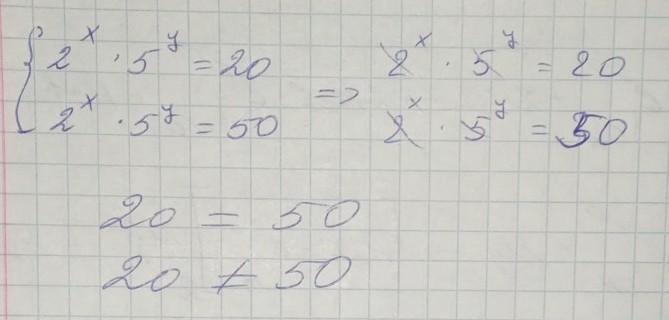 { 2^x · 5^y = 20 => 2^x · 5^y = 20
2^x · 5^y = 50 2^x · 5^y = 50
20 = 50
20 ≠ 50